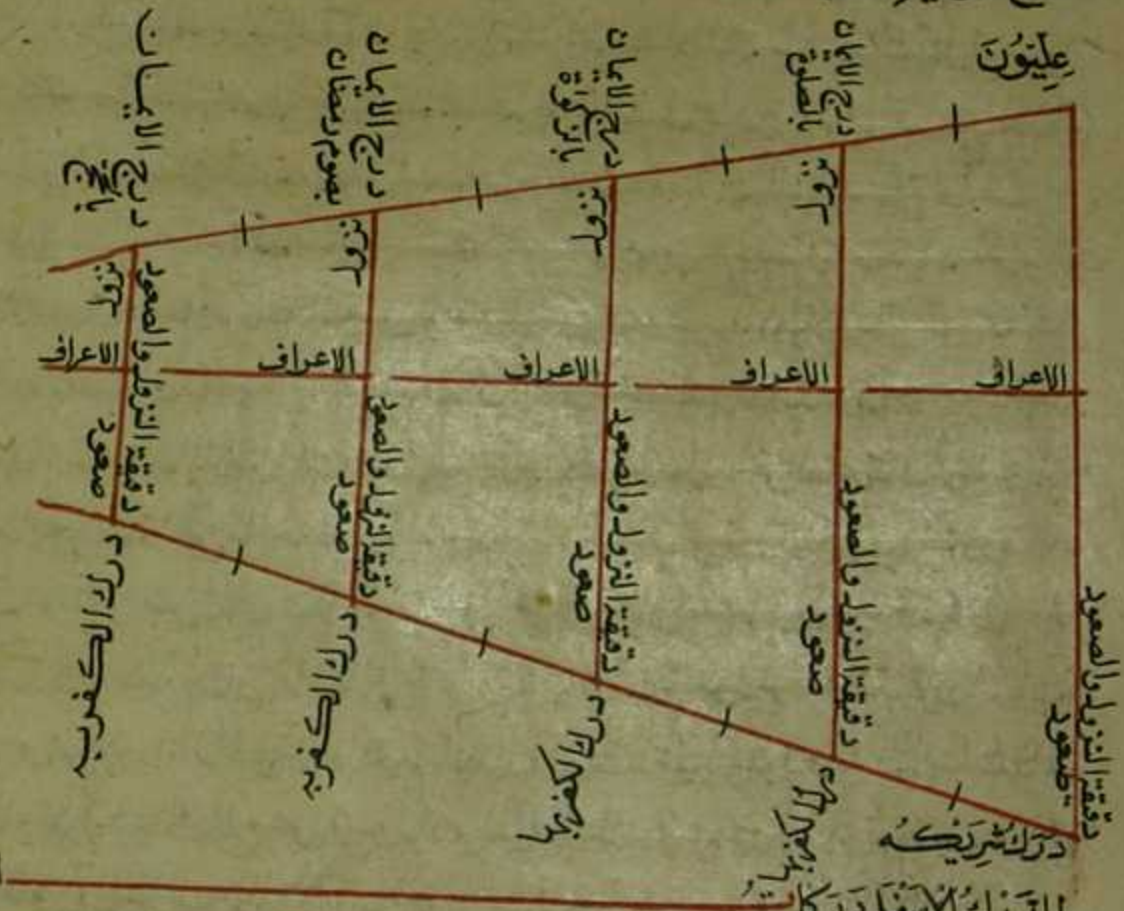 عِلِيّوُنَ
درج الايمان
بالصلوة
درج الايمان
بالزكوة
درج الايمان
بصوم رمضان
درج الايمان
بالحج
نزول
نزول
نزول
نزول
الاعراف
الاعراف
الاعراف
الاعراف
الاعراف
دقيقة النزول والصعود
صعود
دقيقة النزول والصعود
صعود
دقيقة النزول والصعود
صعود
دقيقة النزول والصعود
صعود
دقيقة النزول والصعود
صعود
درك
درك الكفر بها
درك الكفر بها
درك الكفر به
درك الكفر به